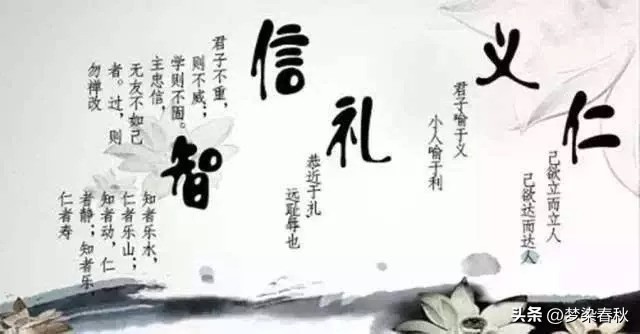 仁
己欲立而立人
己欲达而达人
义
君子喻于义
小人喻于利
礼
恭近于礼，
远耻辱也
信
君子不重，
则不威；
学则不固。
主忠信，
无友不如己
者。过，则
勿禅改
智
知者乐水，
仁者乐山；
知者动，仁
者静；知者乐，
仁者寿
头条 @梦染春秋